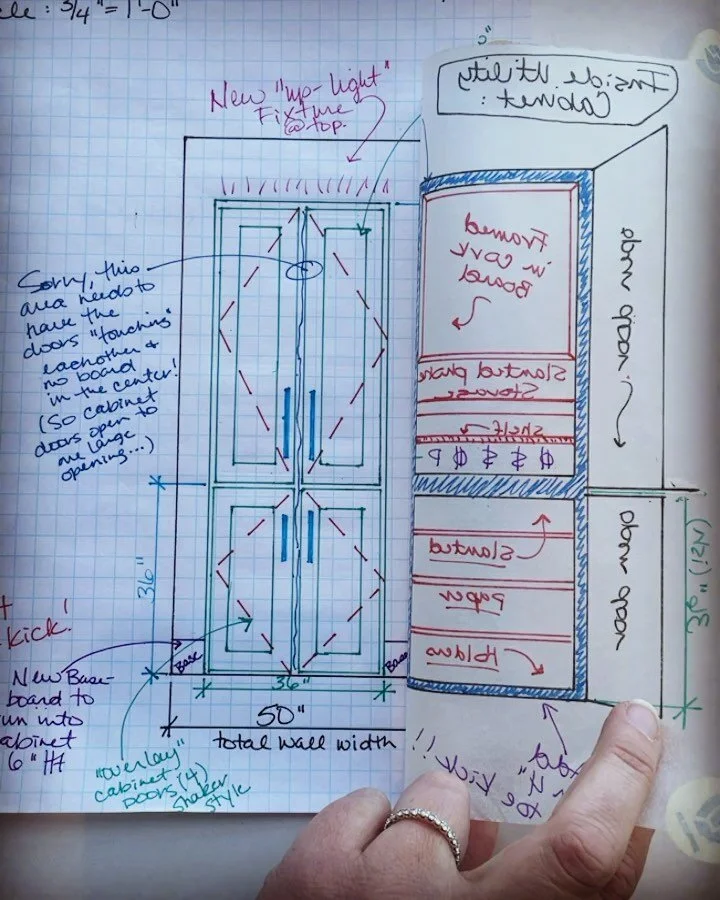 le : 3/4" = 1'-0"
New "up-light"
Fixture
@ top.
Sorry, this
area needs to
have the
doors "touching"
eachother &
no board
in the center!
(So cabinet
doors open to
one large
opening...)
36"
kick!
New Base-
board to
un into
abinet
6" H
Base
Base
36"
50"
total wall width
"overlay"
cabinet
Doors (4)
shaker
style
Inside Utility
Cabinet:
Framed
in cork
Board
Slanted phone
Storage
shelf
$ $ $ $
Slanted
paper
Holders
door open
door open
36"
4"
toe kick!!